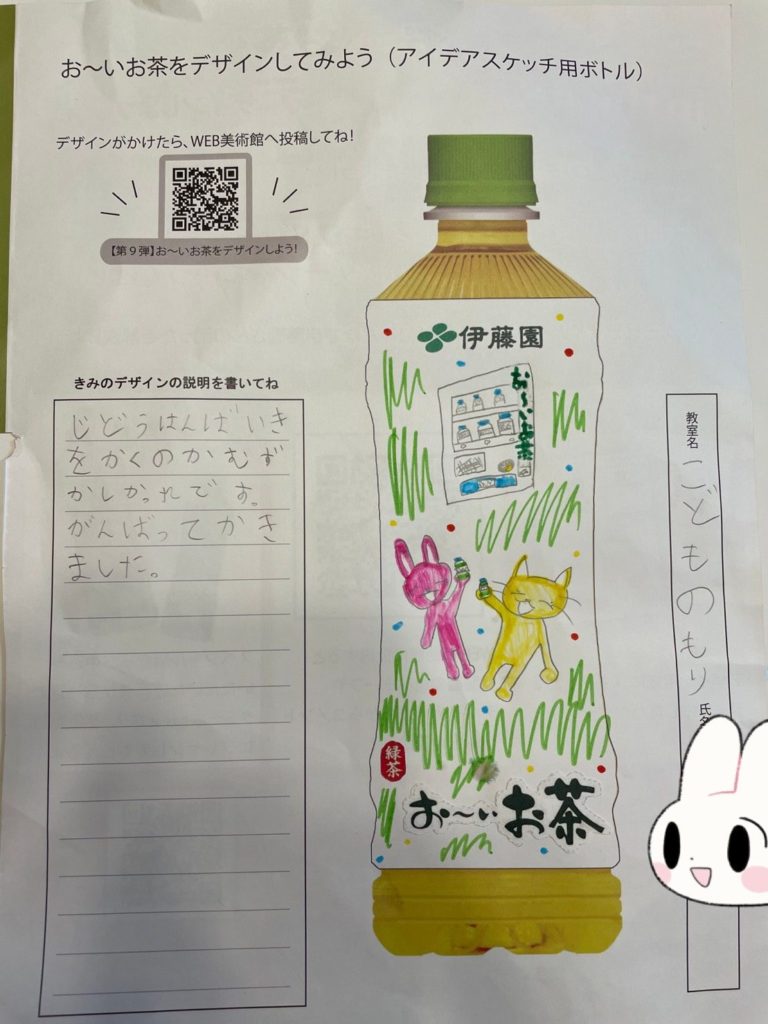 お〜いお茶をデザインしてみよう（アイデアスケッチ用ボトル）
デザインがかけたら、WEB美術館へ投稿してね！
【第９弾】お〜いお茶をデザインしよう！
きみのデザインの説明を書いてね
じどうはんばいき
をかくのかむず
かしかっれです。
がんばってかき
ました。
伊藤園
お〜いお茶
緑茶
お〜いお茶
教室名
こどものもり
氏名